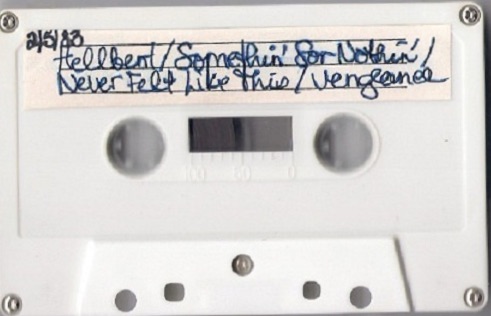 2/5/83
Hellbent / Somethin' for Nothin' /
Never Felt Like This / Vengeance
100 50 0